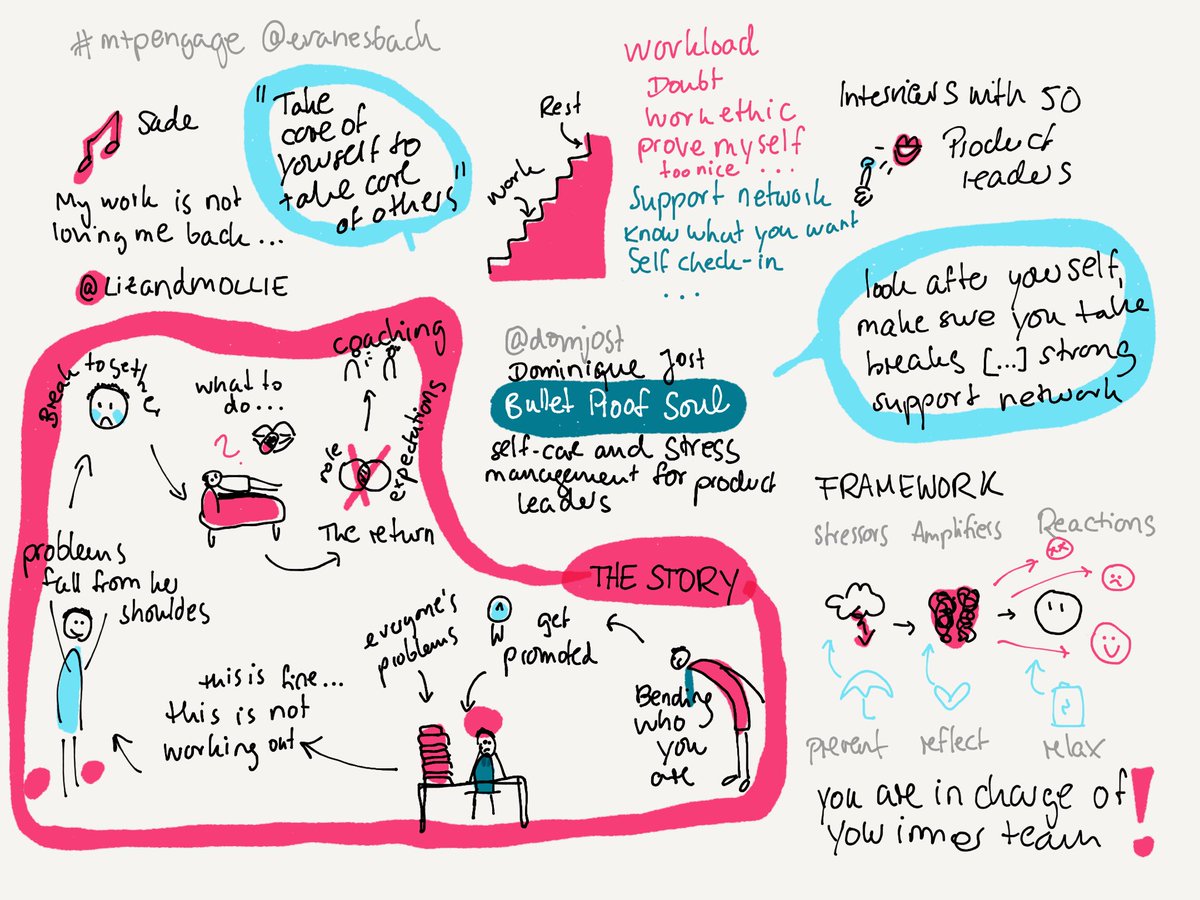 #mtpengage @evanesbach
Sade
My work is not
loving me back...
@LIZandMOLLIE
"Take
care of
yourself to
take care
of others"
Rest
Work
Workload
Doubt
Work ethic
prove myself
too nice ...
Support network
Know what you want
Self check-in
...
Interviews with 50
Product
leaders
look after yourself,
make sure you take
breaks [...] strong
support network
@domjost
Dominique Jost
Bullet Proof Soul
self-care and stress
management for product
leaders
THE STORY
Bending
who
you
are
get
promoted
everyone's
problems
this is fine...
this is not
working out
problems
fall from her
shoulders
Break together
what to
do...
?
The return
role
expectations
coaching
FRAMEWORK
stressors Amplifiers Reactions
prevent reflect relax
you are in charge of
your inner team!